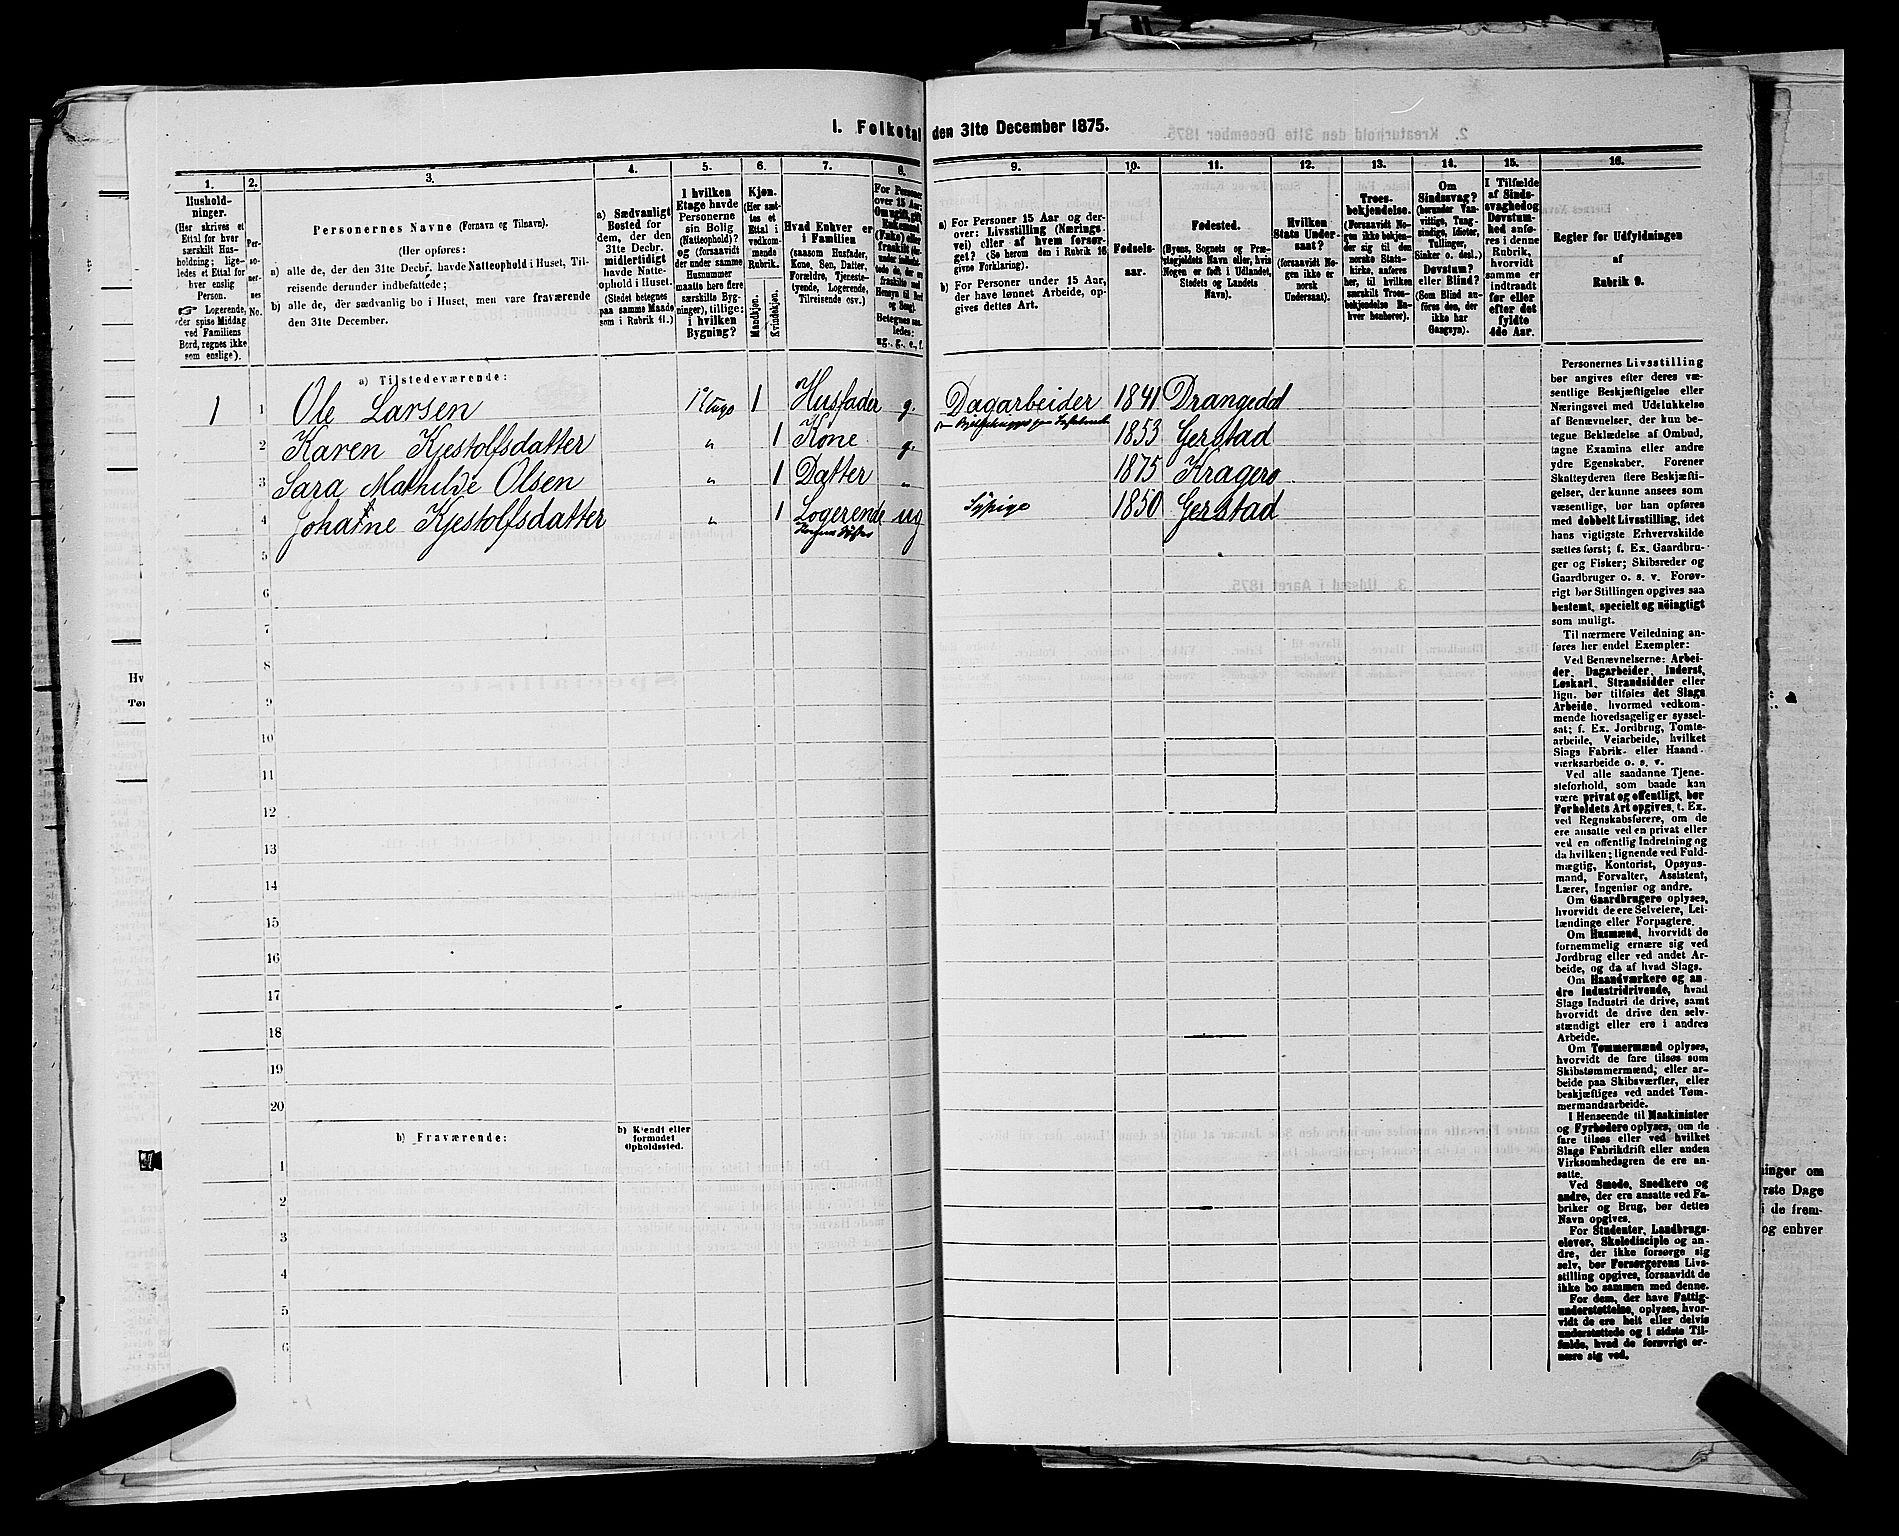 1. Folketal den 31te December 1875.
1.
2.
3.
4.
5.
6.
7.
8.
9.
10.
11.
12.
13.
14.
15.
16.
Husholdninger.
(Her skrives et
Ettal for hver
særskilt Husholdning;
ligeledes et Ettal for
hver enslig
Person.
☞ Logerende,
der spise Middag
ved Familiens
Bord, regnes ikke
som enslige).
Personernes No.
Personernes Navne (Fornavn og Tilnavn).
(Her opføres:
a) alle de, der den 31te Decbr. havde Natteophold i Huset, Tilreisende derunder indbefattede;
b) alle de, der sædvanlig bo i Huset, men vare fraværende
den 31te December.
a) Sædvanligt
Bosted for
dem, der den
31te Decbr.
midlertidigt
havde Natteophold i Huset.
(Stedet betegnes
paa samme Maade
som i Rubrik 11.)
I hvilken
Etage havde
Personerne
sin Bolig
(Natteophold)?
og (forsaavidt
der under samme
Husnummer
maatte høre flere
særskilte Bygninger), tillige:
i hvilken
Bygning?
Kjøn.
(Her sættes et
Ettal i
vedkommende
Rubrik.
Mandkjøn.
Kvindekjøn.
Hvad Enhver er
i Familien
(saasom Husfader,
Kone, Søn, Datter,
Forældre, Tjenestetyende, Logerende,
Tilreisende osv.)
For Personer
over 15 Aar:
Om ugift, gift,
Enkemand
(Enke) eller
fraskilt
ug., g., e., f.
a) For Personer 15 Aar og derover: Livsstilling (Næringsvei) eller af hvem forsørget? (Se herom den i Rubrik 16
givne Forklaring).
b) For Personer under 15 Aar,
der have lønnet Arbeide, opgives dettes Art.
Fødselsaar.
Fødested.
(Byens, Sognets og Præstegjeldets Navn eller, hvis
Nogen er født i Udlandet,
Stedets og Landets
Navn).
Hvilken
Stats Undersaat?
(forsaavidt Nogen ikke er
norsk
Undersaat).
Troesbekjendelse.
(Forsaavidt Nogen ikke bekjender sig til den
norske Statskirke, anføres
her, til hvilken
særskilt Troesbekjendelse Enhver henhører).
Om
Sindssvag?
(herunder Vanvittige, Tungsindige, Idioter,
Tullinger,
Sinker o. desl.)
Døvstum?
eller Blind?
(Som Blind anføres den, der
ikke har
Gangsyn).
I Tilfælde
af Sindssvaghed og
Døvstumhed anføres i denne
Rubrik,
hvorvidt
samme er
indtraadt
før eller
efter det
fyldte
4de Aar.
Regler for Udfyldningen
af
Rubrik 9.
a) Tilstedeværende:
1 1 Ole Larsen 1 Etage 1 Husfader g. Dagarbeider 1841 Drangedal
2 Karen Kjestolfsdatter " 1 Kone g. 1853 Gerstad
3 Sara Mathilde Olsen " 1 Datter " 1875 Kragerø
4 Johanne Kjestolfsdatter " 1 Logerende ug Sypige 1850 Gerstad
Konens Søster
5
6
7
8
9
10
11
12
13
14
15
16
17
18
19
20
b) Fraværende:
b) Kjendt eller
formodet
Opholdssted.
1
2
3
4
5
6
Personernes Livsstilling
bør angives efter deres væsentlige Beskjæftigelse eller
Næringsvei med Udelukkelse
af Benævnelser, der kun betegne Beklædelse af Ombud,
tagne Examina eller andre
ydre Egenskaber. Forener
Skatteyderen flere Beskjæftigelser, der kunne ansees som
væsentlige, bør han opføres
med dobbelt Livsstilling, idet
hans vigtigste Erhvervskilde
sættes først; f. Ex. Gaardbruger og Fisker; Skibsreder og
Gaardbruger o. s. v. Forøvrigt bør Stillingen opgives saa
bestemt, specielt og nøiagtigt
som muligt.
Til nærmere Veiledning anføres her endel Exempler:
Ved Benævnelserne: Arbeider, Dagarbeider, Inderst,
Løskarl, Strandsidder eller
lign. bør tilføies det Slags
Arbeide, hvormed vedkommende hovedsagelig er sysselsat; f. Ex. Jordbrug, Tomtearbeide, Veiarbeide, hvilket
Slags Fabrik- eller Haandværksarbeide o. s. v.
Ved alle saadanne Tjenesteforhold, som baade kan
være privat og offentligt, bør
Forholdets Art opgives, t. Ex.
ved Regnskabsførere, om de
ere ansatte ved en privat eller
ved en offentlig Indretning og
da hvilken; lignende ved Fuldmægtig, Kontorist, Opsynsmand, Forvalter, Assistent,
Lærer, Ingeniør og andre.
Om Gaardbrugere oplyses,
hvorvidt de ere Selveiere, Leilændinge eller Forpagtere.
Om Husmænd, hvorvidt de
fornemmelig ernære sig ved
Jordbrug eller ved andet Arbeide, og da af hvad Slags.
Om Haandværkere og andre Industridrivende, hvad
Slags Industri de drive, samt
hvorvidt de drive den selvstændigt eller ere i andres
Arbeide.
Om Tømmermænd oplyses,
hvorvidt de fare tilsøs som
Skibstømmermænd; eller arbeide paa Skibsværfter, eller
beskjæftiges ved andet Tømmermandsarbeide.
I Henseende til Maskinister
og Fyrbødere oplyses, om de
fare tilsøs eller ved hvilket
Slags Fabrikdrift eller anden
Virksomhedsgren de ere ansatte.
Ved Smede, Snedkere og
andre, der ere ansatte ved Fabriker og Brug, bør dettes
Navn opgives.
For Studenter, Landbrugselever, Skoledisciple og andre, der ikke forsørge sig
selv, bør Forsørgerens Livsstilling opgives, forsaavidt de
ikke bo sammen med denne.
For dem, der have Fattigunderstøttelse, oplyses, hvorvidt de ere helt eller delvis
understøttede og i sidste Tilfælde, hvad de forøvrigt ernære sig ved.